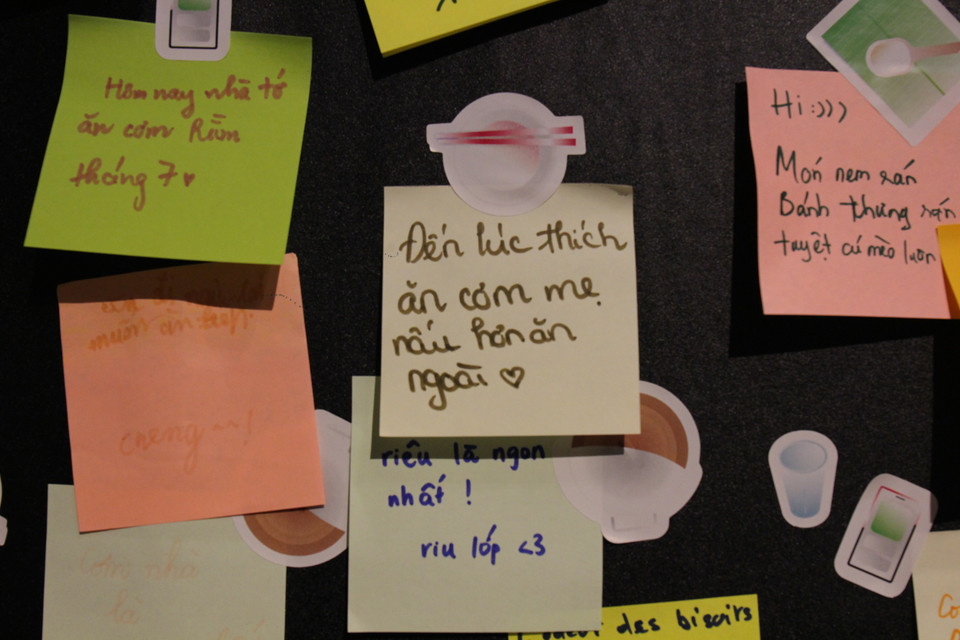 Hôm nay nhà tớ
ăn cơm Rằm
tháng 7 ♥
Đến lúc thích
ăn cơm mẹ
nấu hơn ăn
ngoài ♡
Hi :)))
Món nem rán
Bánh thưng rán
tuyệt cú mèo luôn
muốn ăn tiếp!
riêu là ngon
nhất !
riu lốp <3
Cơm nhà
là
des biscuits